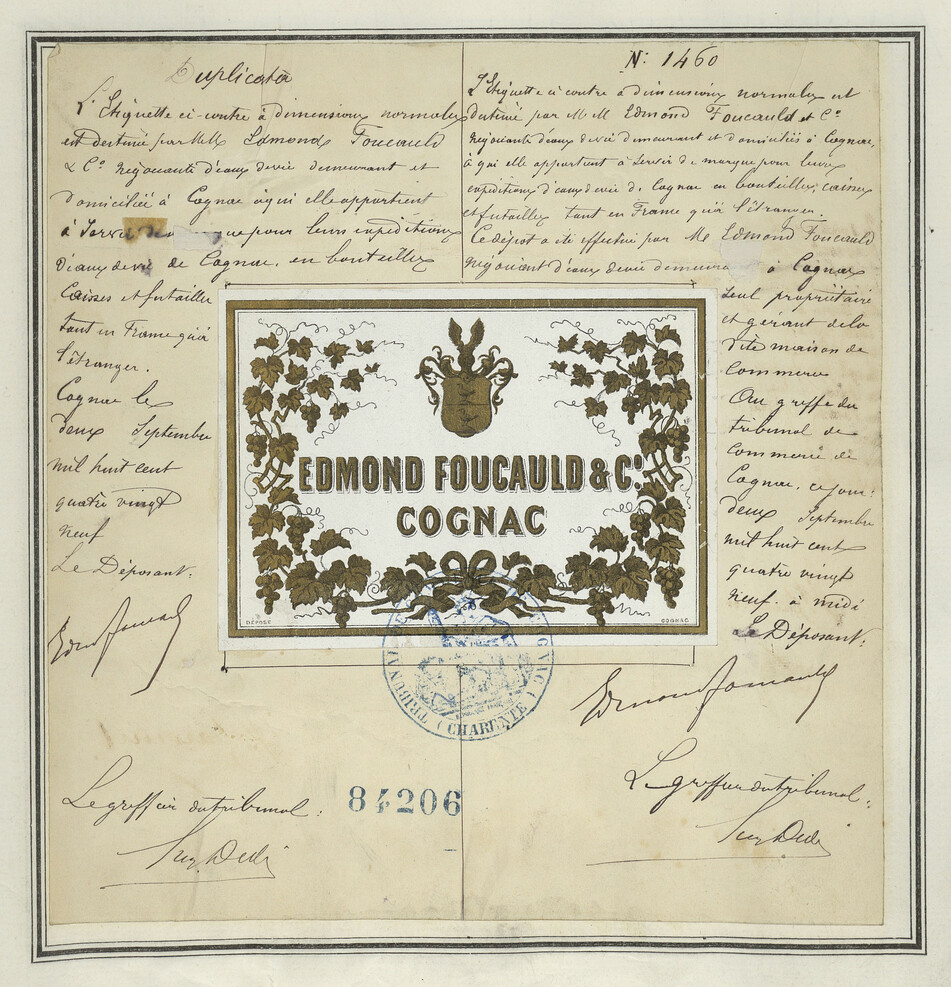 Duplicata
L'Etiquette ci-contre à dimensions normales
est destinée par MM Edmond Foucauld
& Cº Négociants d'eaux de vie demeurant et
domiciliés à Cognac à qui elle appartient
à Servir de marque pour leurs expéditions
d'eaux de vie de Cognac. en bouteilles
Caisses et futailles
tant en France qu'à
l'étranger.
Cognac le
deux Septembre
mil huit cent
quatre vingt
neuf
Le Déposant.
Edmd Foucauld
Le greffier du tribunal.
84206
Nº 1460
L'Etiquette ci contre à dimensions normales est
destinée par MM Edmond Foucauld et Cº
Négociants d'eaux de vie demeurant et domiciliés à Cognac,
à qui elle appartient à Servir de marque pour leurs
expéditions d'eaux de vie de Cognac en bouteilles, caisses
et futailles tant en France qu'à l'étranger.
Ce dépôt a été effectué par Mr Edmond Foucauld
Négociant d'eaux de vie demeurant à Cognac
Seul propriétaire
et gérant de la
dite maison de
Commerce
Au greffe du
tribunal de
Commerce de
Cognac, ce jour.
deux Septembre
mil huit cent
quatre vingt
neuf. à midi
Le Déposant.
Edmond Foucauld
Le greffier du tribunal.
EDMOND FOUCAULD & Cº.
COGNAC
DÉPOSÉ
COGNAC
TRIBUNAL DE
(CHARENTE)